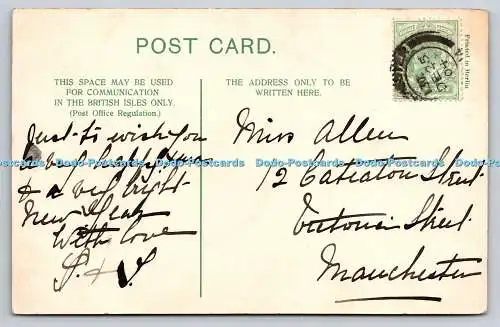 POST CARD.
THIS SPACE MAY BE USED
FOR COMMUNICATION
IN THE BRITISH ISLES ONLY.
(Post Office Regulation.)
THE ADDRESS ONLY TO BE
WRITTEN HERE.
Printed in Berlin
Just to wish you
a Happy Xmas
& a very bright
New Year
With love
Miss Allen
12 Cateaton Street
Victoria Street
Manchester
Dodo-Postcards Dodo-Postcards Dodo-Postcards Dodo-Postcards Dodo-Postcards